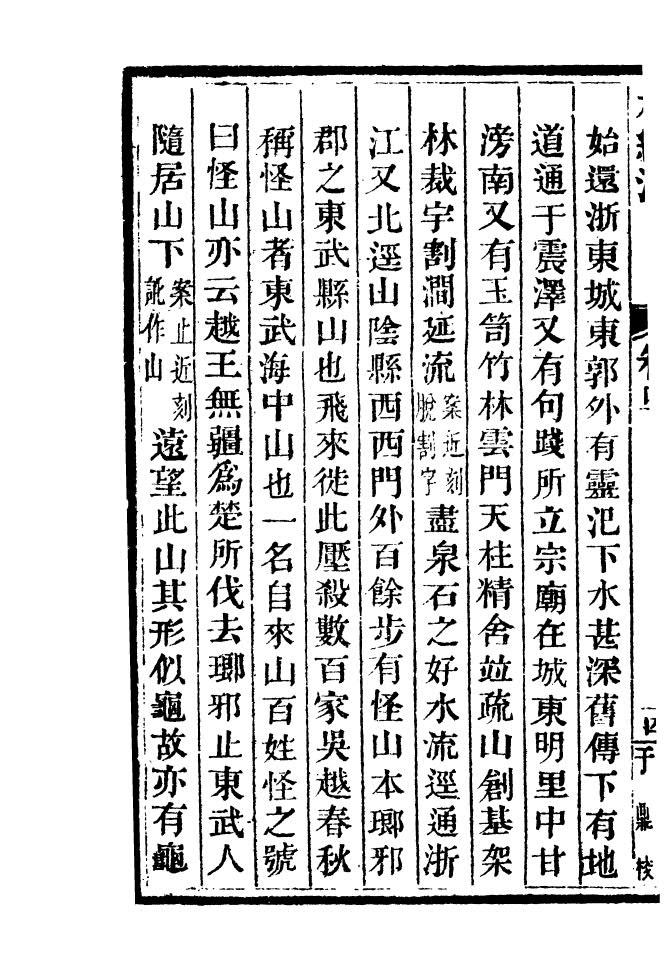 始還浙東城東郭外有靈汜下水甚深舊傳下有地
道通于震澤又有句踐所立宗廟在城東明里中甘
滂南又有玉笥竹林雲門天柱精舍竝疏山創基架
林裁宇割澗延流案近刻脫割字盡泉石之好水流逕通浙
江又北逕山陰縣西西門外百餘步有怪山本瑯邪
郡之東武縣山也飛來徙此壓殺數百家吳越春秋
稱怪山者東武海中山也一名自來山百姓怪之號
曰怪山亦云越王無疆爲楚所伐去瑯邪止東武人
隨居山下案止近刻訛作山遠望此山其形似龜故亦有龜